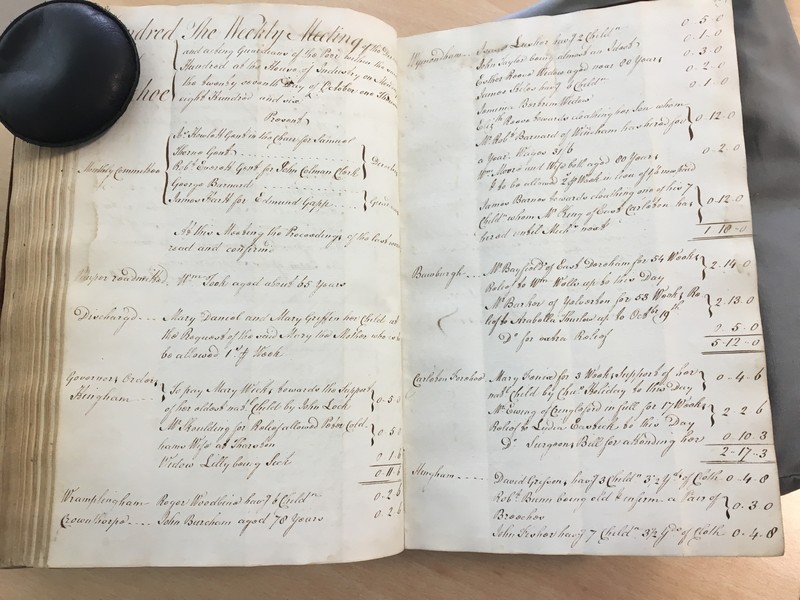 The Weekly Meeting of the
and acting Guardians of the Poor within the
Hundred at the House of Industry on
the twenty seventh Day of October one
eight Hundred and six
hoe
Present
Mr Howlett Gent in the Chair for Samuel
Thorne Gent
Monthly Committee
Robt Everett Gent for John Colman Clark
George Barnard
James Hart for Edmund Gapp
At this Meeting the Proceedings of the last were
read and confirmd
Pauper readmitted Wm Took aged about 65 Years
Dischargd Mary Daniel and Mary Griffen her Child at
the Request of the said Mary the Mother who is to
be allowed 1s P Week
Governors Orders
Hingham To pay Mary Wick towards the Support
of her eldest natl Child by John Lock 0 . 5 . 0
Mr Roulding for Relief allowed Peter Cold
hams Wife at Tharston 0 . 5 . 0
Widow Lilly being Sick 0 . 1 . 6
0 . 11 . 6
Wramplingham Roger Woodbine havg 6 Childn 0 . 2 . 6
Crownthorpe John Burcham aged 78 Years 0 . 2 . 6
Wymondham havg 2 Childn 0 . 5 . 0
John Taylor being almost an Ideot 0 . 1 . 0
Esther Reeve Widow aged near 80 Years 0 . 3 . 0
James havg 6 Childn 0 . 2 . 0
Jemima Widow 0 . 1 . 0
Reeve towards cloathing her Son whom
Mr Robt Barnard of Windham has hired for
a Year Wages 31/6 0 . 12 . 0
Wm Moore and Wife both aged 80 Years
to be allowed 2s P Week in lieu of 0 . 2 . 0
James Barnes towards cloathing one of his 7
Childn whom Mr King of East Carleton has
hired until Michs next 0 . 12 . 0
1 . 18 . 0
Bawburgh Mr Bayfield of East Dereham for 54 Weeks
Relief to Wm Wells up to this Day 2 . 14 . 0
Mr Barker of Yelverton for 53 Weeks Re
lief to Arabella Thurlow up to Octbr 19th 2 . 13 . 0
Do for extra Relief 5 . 0
5 . 12 . 0
Carleton Forehoe Mary for 3 Weeks Support of her
natl Child by Chas Holiday to this Day 0 . 4 . 6
Mr Ewing of Cringleford in full for 17 Weeks
Relief to Lydia to this Day 2 . 2 . 6
Do Surgeons Bill for attending her 0 . 10 . 3
2 . 17 . 3
Hingham David Grissen havg 3 Childn 3 1/2 Yds of Cloth 0 . 4 . 8
Robt Bunn being old & infirm a Pair of
Breeches 0 . 3 . 0
John Fisher havg 7 Childn 3 1/2 Yds of Cloth 0 . 4 . 8